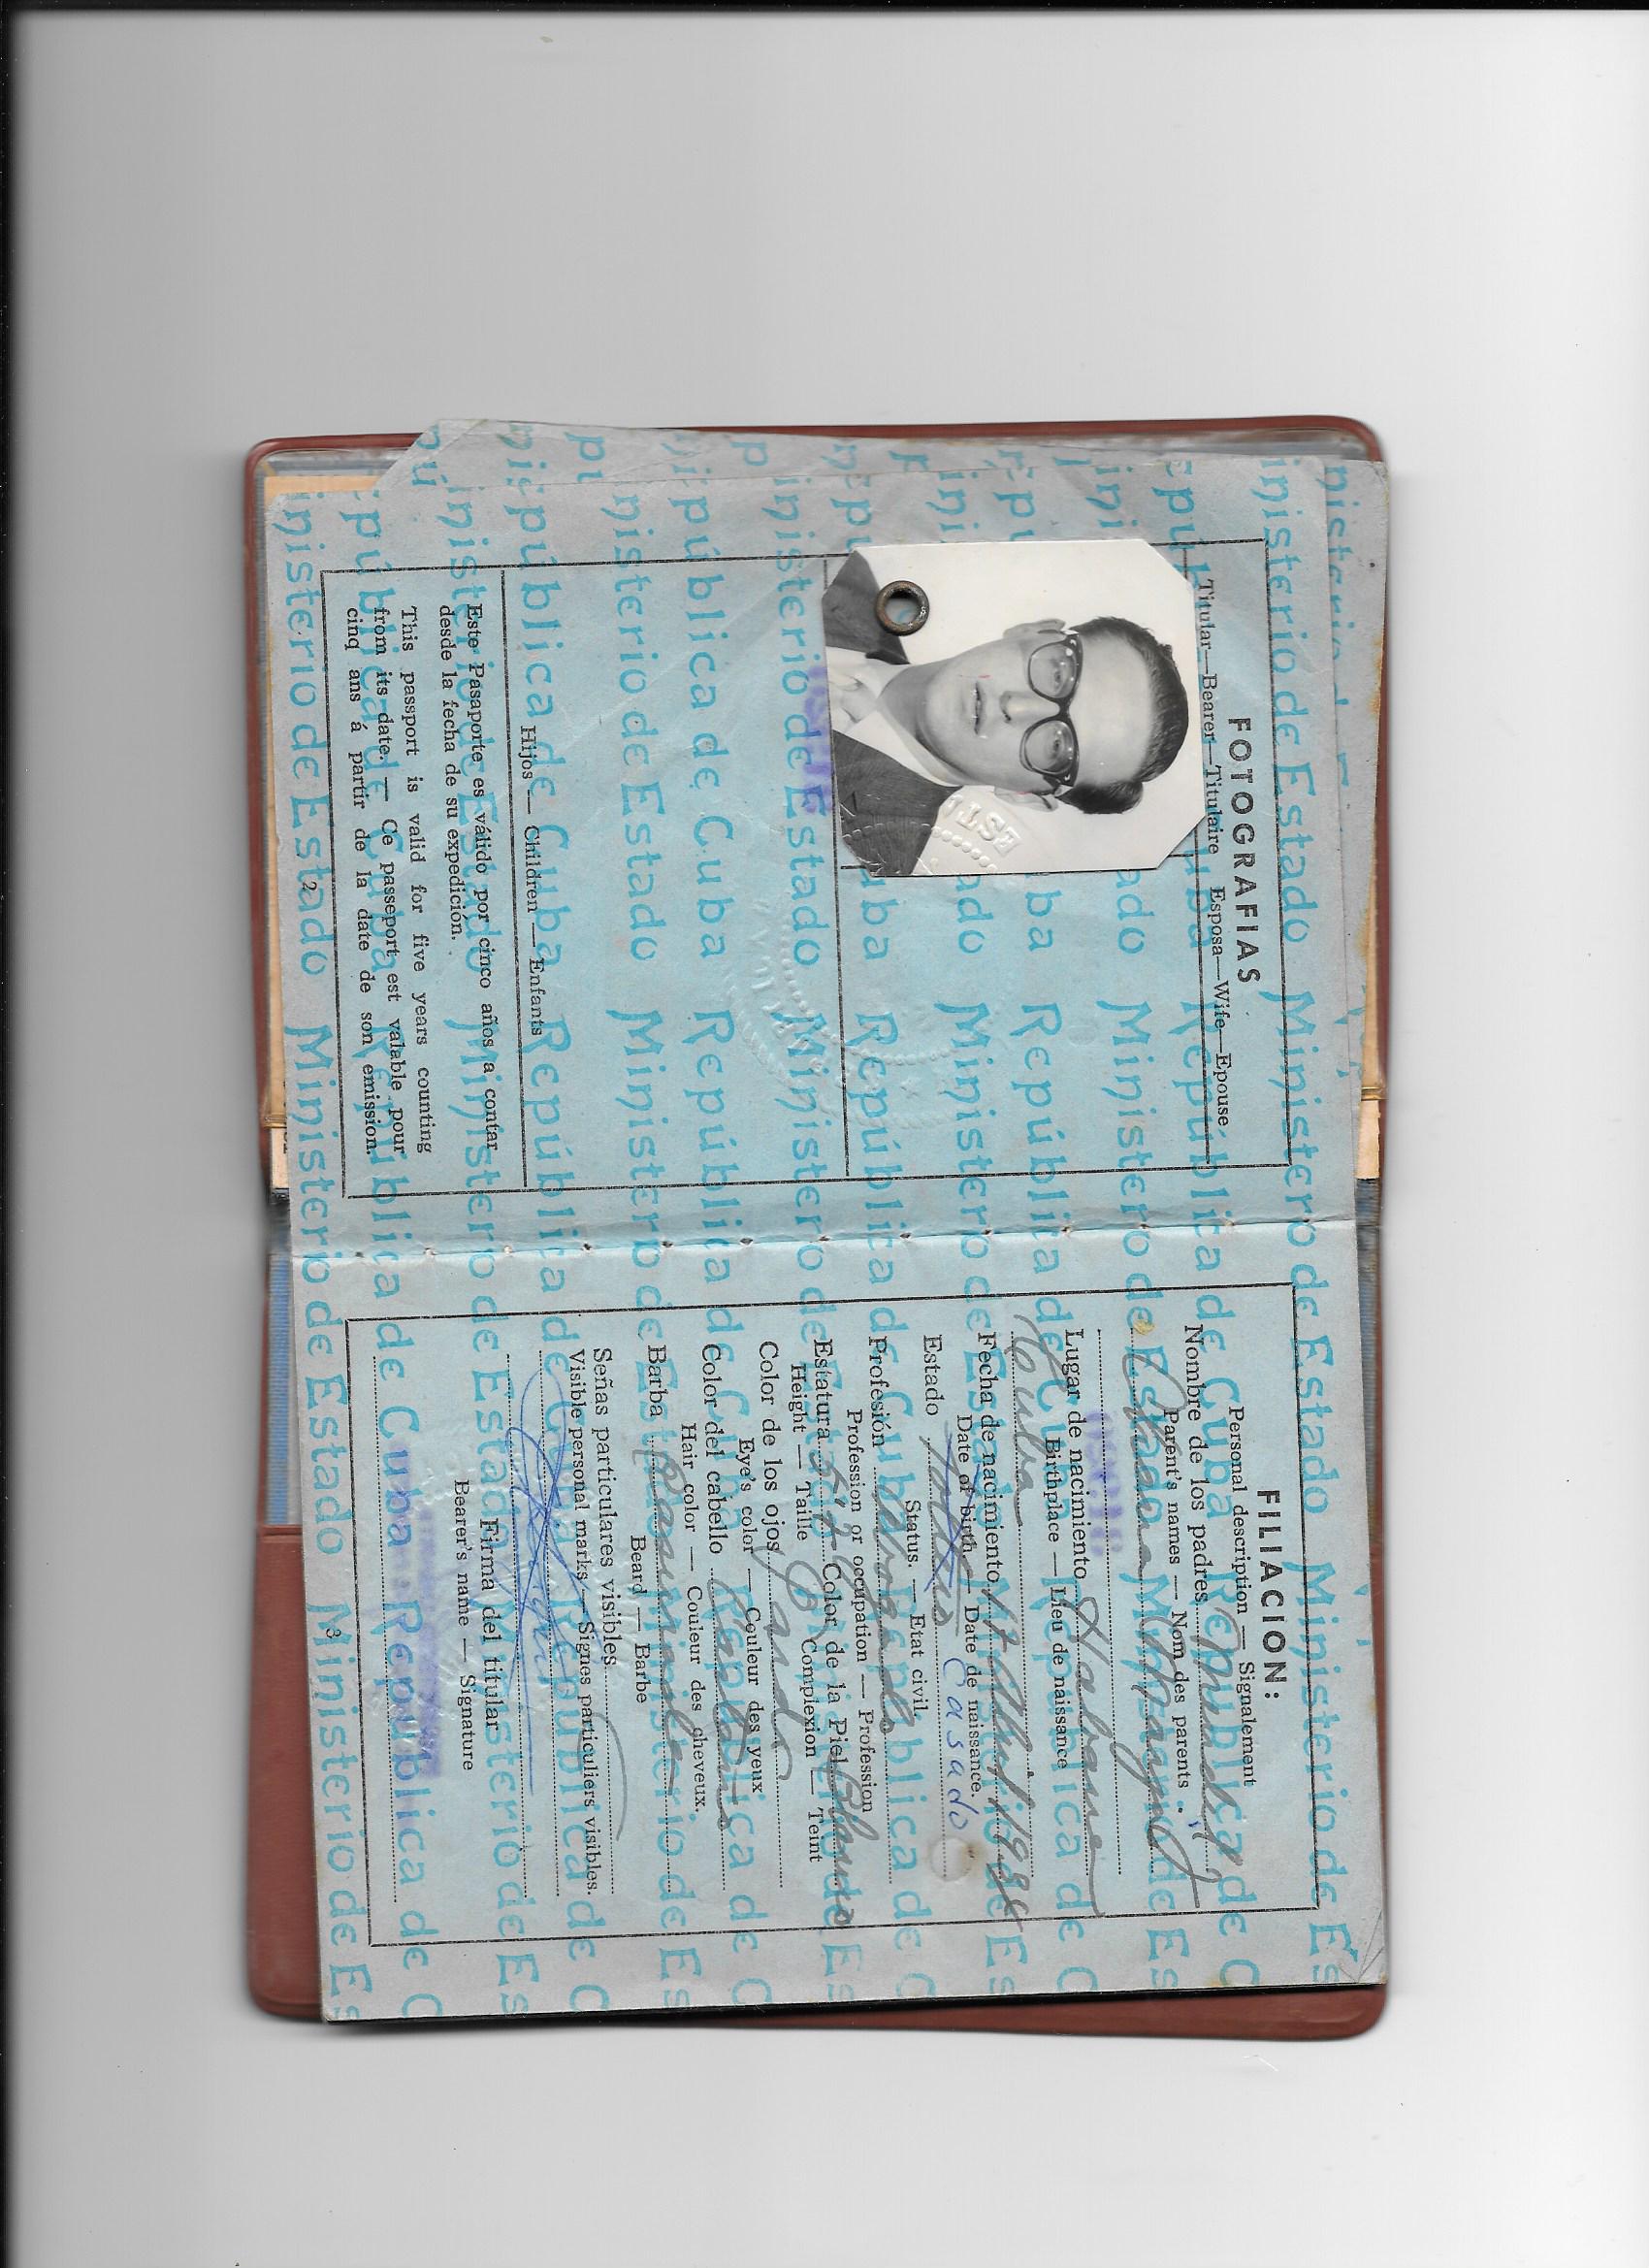 FOTOGRAFIAS
Titular—Bearer—Titulaire Esposa—Wife—Epouse
Hijos — Children — Enfants
Este Pasaporte es válido por cinco años a contar
desde la fecha de su expedición.
This passport is valid for five years counting
from its date. — Ce passeport est valable pour
cinq ans á partir de la date de son emission.
2
FILIACION:
Personal description — Signalement
Nombre de los padres
Parent's names — Nom des parents
Lugar de nacimiento Habana
Birthplace — Lieu de naissance
Cuba
Fecha de nacimiento
Date of birth — Date de naissance.
Estado Soltero Casado
Status. — Etat civil.
Profesión Abogado
Profession or occupation — Profession
Estatura Color de la Piel Blanco
Height — Taille Complexion — Teint
Color de los ojos Pardos
Eye's color — Couleur des yeux
Color del cabello
Hair color — Couleur des cheveux.
Barba
Beard — Barbe
Señas particulares visibles
Visible personal marks — Signes particuliers visibles.
Firma del titular
Bearer's name — Signature
3
República de Cuba
Ministerio de Estado